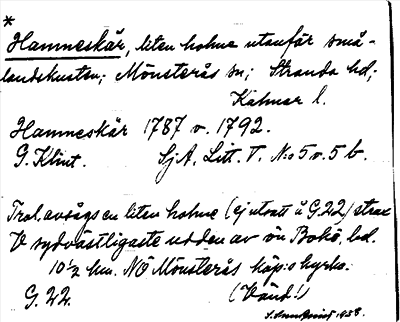 *
Hamneskär, liten holme utanför små-
landskusten; Mönsterås sn; Stranda hd;
Kalmar l.
Hamneskär 1787 o. 1792.
G. Klint. SjA. Litt. T. N:o 5 o. 5 b.
Trol. avsågs en liten holme (ej utsatt å G.22) strax
V sydvästligaste udden av ön Bokö, bel.
10½ km. NÖ Mönsterås köp:s kyrka.
G. 22. (Vänd!)
1938.